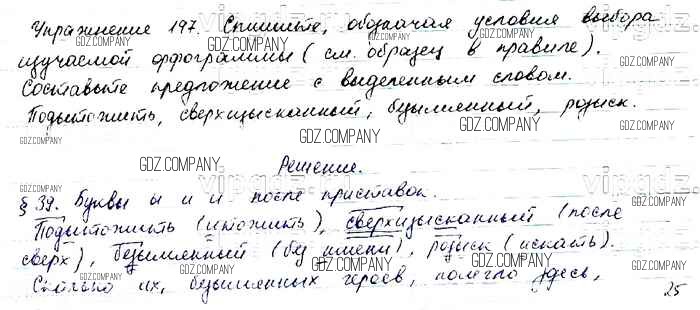 Упражнение 197. Спишите, обозначая условия выбора
изучаемой орфограммы (см. образец в правиле).
Составьте предложение с выделенным словом.
Подытожить, сверхизысканный, безымянный, розыск.
Решение.
§ 39. Буквы ы и и после приставок.
Подытожить (итожить), сверхизысканный (после
сверх), безымянный (без имени), розыск (искать).
Сколько их, безымянных героев, полегло здесь,
25
GDZ.COMPANY
vipgdz.ru